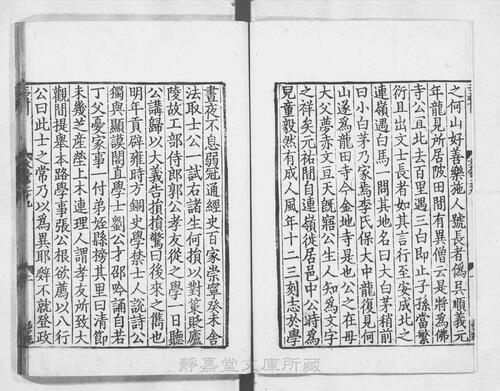 之何山好善樂施人號長者偽吳順義元
年龍見所居陂田間有異僧云是將為佛
寺公且此去百里遇三白即止子孫當繁
衍且出文士長者如其言行至安成北之
連嶺遇白馬一問其地名曰大白茅稍前
曰小白茅乃家焉李氏保大中龍復見何
山遂為龍田寺今金地寺是也公之在母
大父夢赤文亘天既寤公生人知為文字
之祥矣元祐間自連嶺徙居邑中公時為
兒童毅然有成人風年十二三刻志於學
晝夜不息弱冠通經史百家崇寧癸未舍
法取士公一試右諸生何損以對策貶廬
陵故工部侍郎郭公孝友從之學一日聽
公講歸以大義告損損驚曰後來之雋也
明年貢辟雍時方錮史學禁士人說詩公
獨與顯謨閣直學士劉公才邵吟誦自若
丁父憂家事一付弟姪縣榜其里曰清節
未幾芝產塋上木連理人謂孝友所致大
觀間提舉本路學事張公根欲薦以八行
公曰此士之常乃以為異耶辭不就登政
靜嘉堂文庫所藏